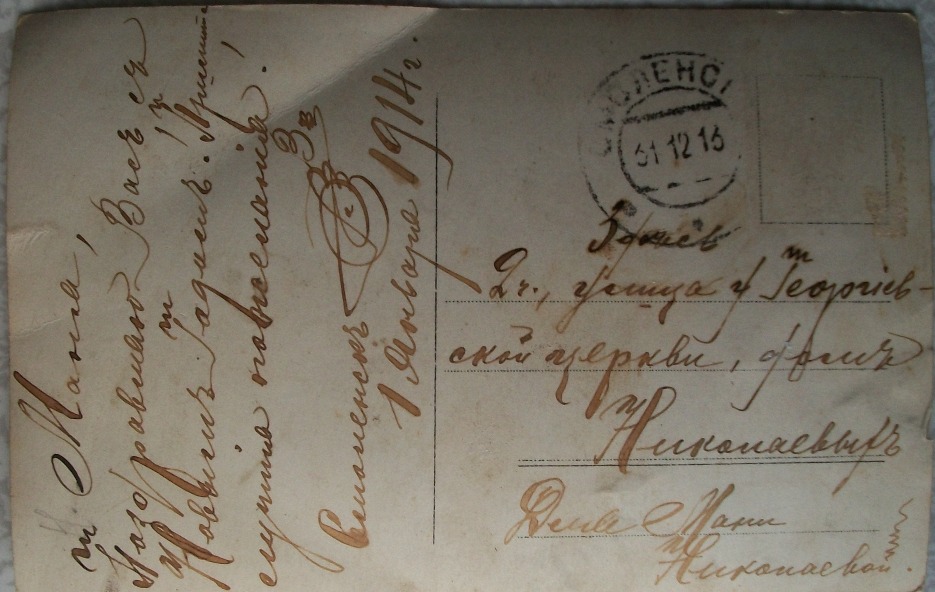 Маня!
Поздравляю Васъ съ
Новымъ Годомъ! Примите
пожеланія!
Смоленскъ
1 Января 1914 г.
СМОЛЕНС
31 12 13
Здѣсь
2ч., улица у Георгіев-
ской церкви, домъ
Николаевыхъ
Для Мани
Николаевой.